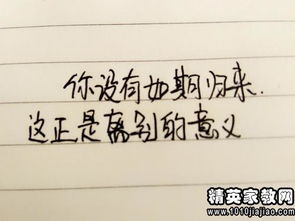 你没有如期归来.
这正是离别的意义
精英家教网
www.1010jiajiao.com